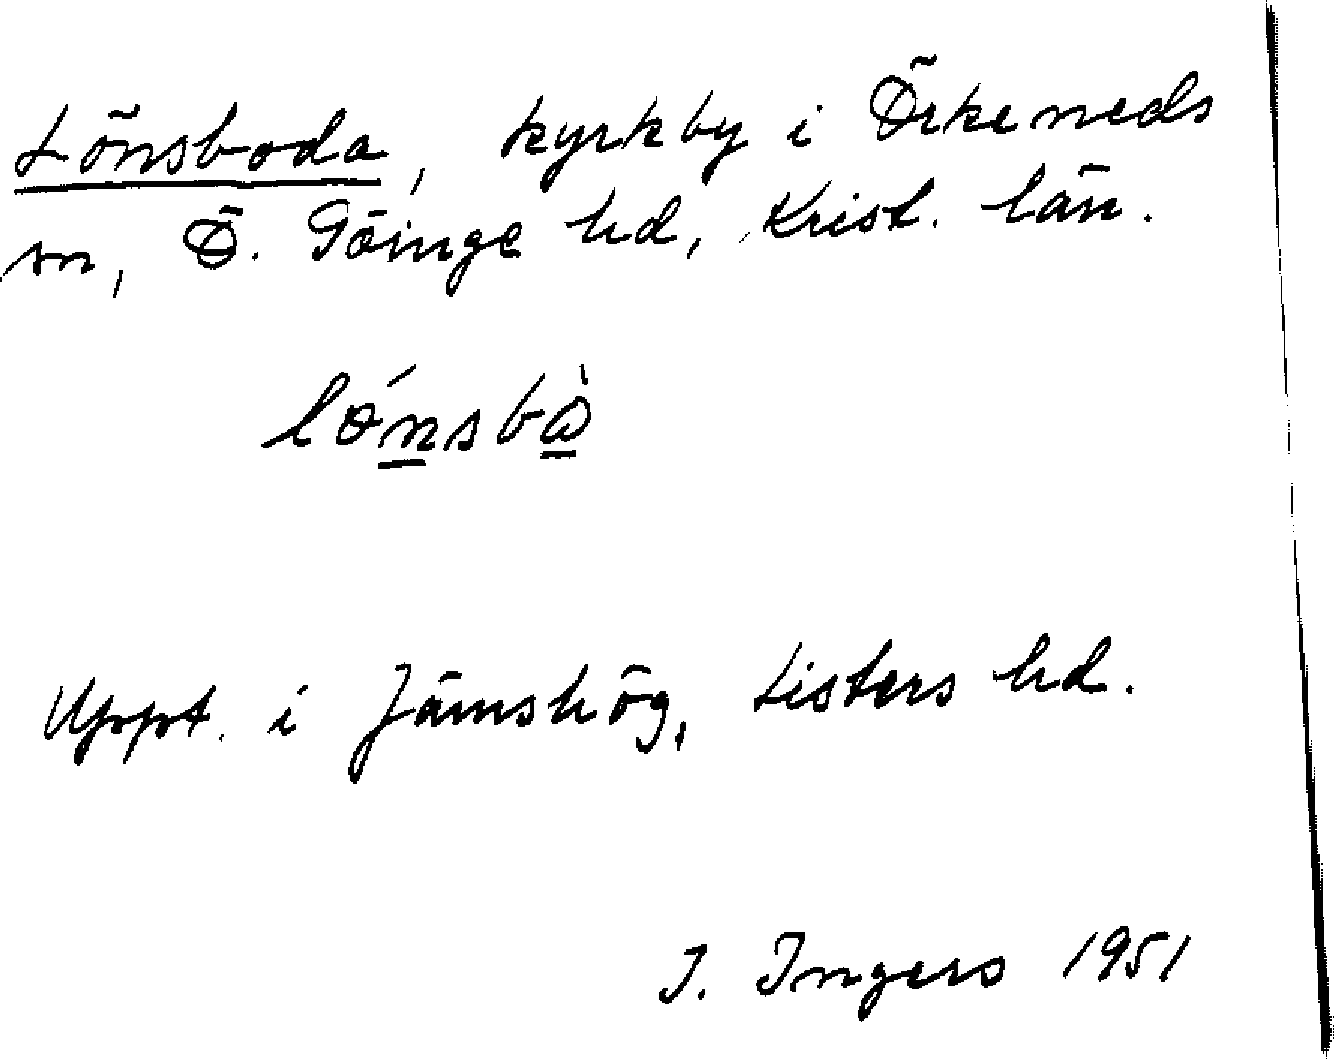 Lönsboda, kyrkby i Örkeneds
sn, Ö. Göinge hd, Krist. län.
Uppt. i Jämshög, Listers hd.
I. Ingers 1951